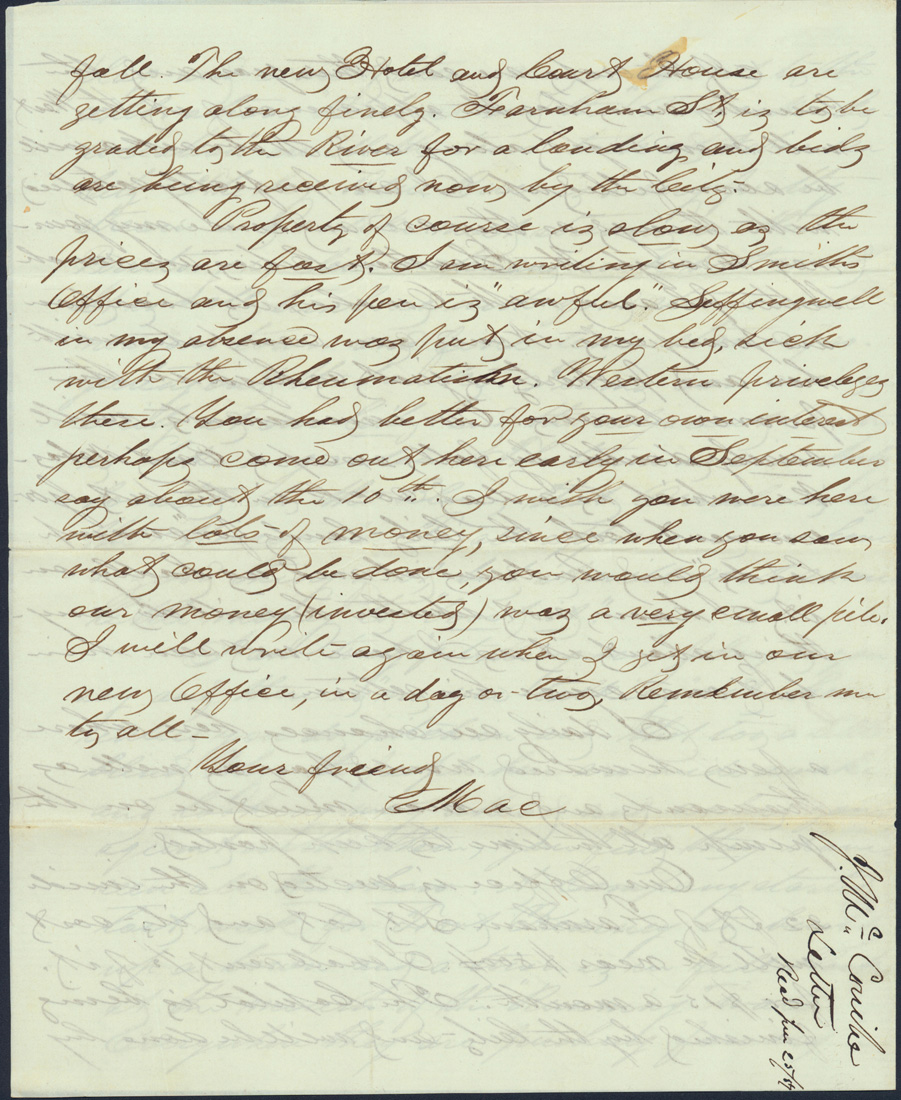 fall. The new Hotel and Court House are
getting along finely. Farnham St, is to be
graded to the River for a landing and bids
are being received now by the City.
Property of course is slow as the
prices are fast. I am writing in Smith's
Office and his pen is "awful." Leffingwell
in my absence was put in my bed, sick
with the Rheumatism. Western privileges
these. You had better for your own interest
perhaps come out here early in September
say about the 10th. I wish you were here
with "lots of money, since when you saw
what could be done, you would think
our money (invested) was a very small pile.
I will write again when I get in our
new Office, in a day or two, Remember me
to all-
Your friend
Mac
J. Mc Conihe
Letter
Recd